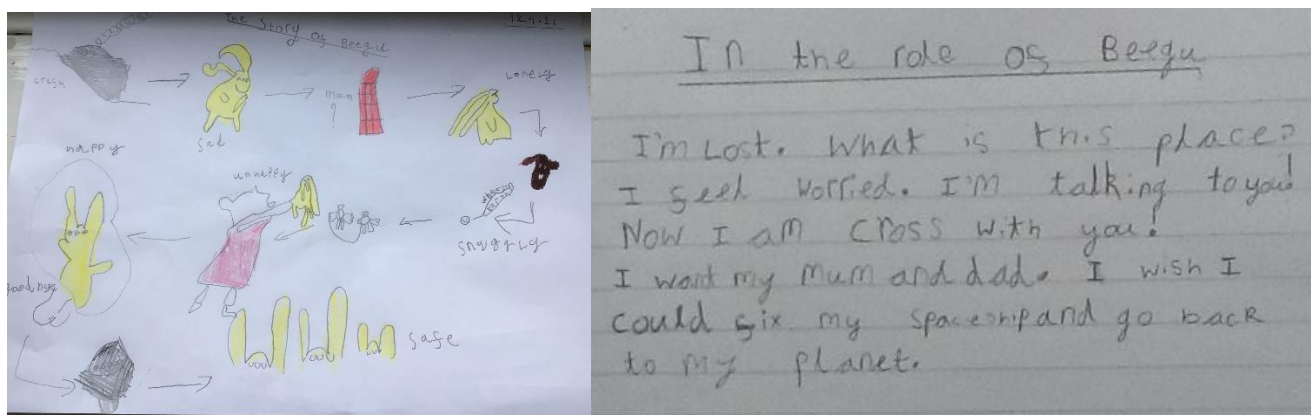 The Story Of Beegu
12.1.21
crash
sad
man
?
Lonely
snuggly
unhappy
happy
Goodbye
safe
In the role of Beegu
I'm Lost. What is this place?
I feel worried. I'm talking to you!
Now I am cross with you!
I want my mum and dad. I wish I
could fix my spaceship and go back
to my planet.